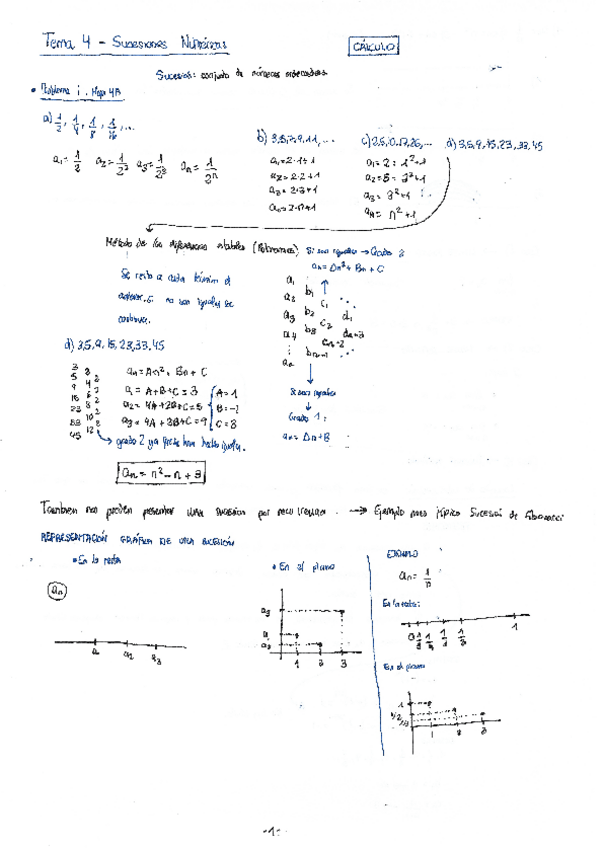 Tema 4 - Sucesiones Numéricas
CÁLCULO
Sucesión: conjunto de números ordenados
• Problema 1. Hoja 4A
a) 1/2, 1/4, 1/8, 1/16, ...
a₁ = 1/2 a₂ = 1/2² a₃ = 1/2³ aₙ = 1/2ⁿ
b) 3,5,7,9,11, ...
a₁ = 2·1+1
a₂ = 2·2+1
a₃ = 2·3+1
aₙ = 2·n+1
c) 2,5,10,17,26, ...
a₁ = 2 = 1²+1
a₂ = 5 = 2²+1
a₃ = 3²+1
aₙ = n²+1
d) 3,5,9,15,23,33,45
Método de las diferencias estables (Polinomios)
Se resta a cada término el
anterior. Si no son iguales se
continua.
Si son iguales → Grado 2
aₙ = An² + Bn + C
a₁
a₂ b₁
a₃ b₂ c₁
a₄ b₃ c₂ d₁
aₙ bₙ₋₁ cₙ₋₂ dₙ₋₃
Si son iguales
Grado 1:
aₙ = An+B
d) 3,5,9,15,23,33,45
3 2
5 4 2
9 6 2
15 8 2
23 10 2
33 12 2
45
aₙ = An² + Bn + C
a₁ = A+B+C = 3
a₂ = 4A+2B+C = 5
a₃ = 9A+3B+C = 9
A = 1
B = -1
C = 3
grado 2 ya que han iguales.
aₙ = n² - n + 3
Tambien nos pueden presentar una sucesión por recurrencia. → Ejemplo mas típico Sucesión de Fibonacci
REPRESENTACIÓN GRÁFICA DE UNA SUCESIÓN
• En la recta
aₙ
a₁ a₂ a₃
• En el plano
a₃
a₁
a₂
1 2 3
EJEMPLO
aₙ = 1/n
En la recta:
0 1/5 1/4 1/3 1/2 1
En el plano
1
1/2
1/3
1 2 3
-1-